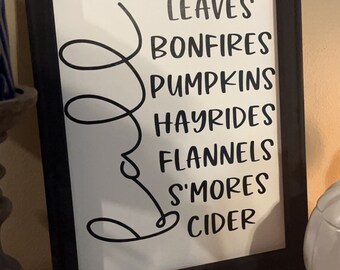 fall
LEAVES
BONFIRES
PUMPKINS
HAYRIDES
FLANNELS
S'MORES
CIDER